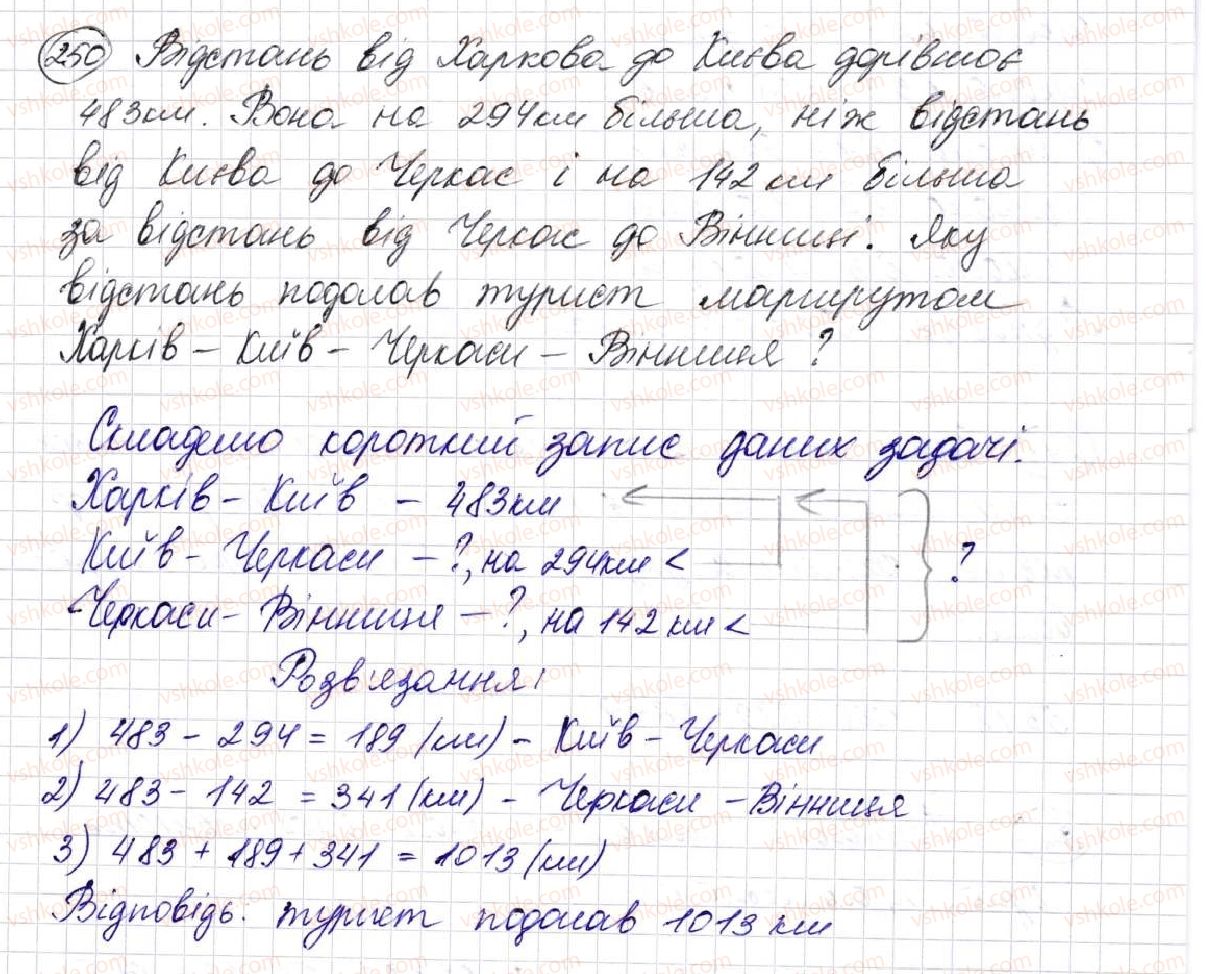 250 Відстань від Харкова до Києва дорівнює
483 км. Вона на 294 км більша, ніж відстань
від Києва до Черкас і на 142 км більша
за відстань від Черкас до Вінниці. Яку
відстань подолав турист маршрутом
Харків – Київ – Черкаси – Вінниця ?
Складемо короткий запис даних задачі.
Харків – Київ – 483 км
Київ – Черкаси – ?, на 294 км <
Черкаси – Вінниця – ?, на 142 км <
?
Розв'язання:
1) 483 – 294 = 189 (км) – Київ – Черкаси
2) 483 – 142 = 341 (км) – Черкаси – Вінниця
3) 483 + 189 + 341 = 1013 (км)
Відповідь: турист подолав 1013 км
vshkole.com